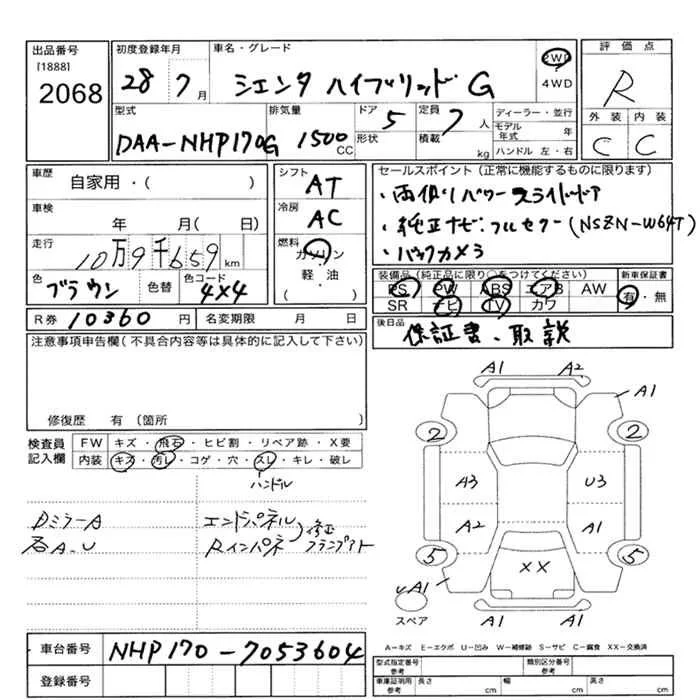 出品番号
[1888]
2068
初度登録年月
28 7月
車名・グレード
シエンタ ハイブリッド G
2WD
4WD
評価点
R
外装 内装
C C
型式
DAA-NHP170G
排気量
1500 CC
ドア 5
形状
定員 7 人
積載 kg
ディーラー・並行
モデル年式 年
ハンドル 左・右
車歴
自家用・( )
車検
年 月( 日)
走行
10万9千659 km
色
ブラウン
色替
色コード
4X4
シフト
AT
冷房
AC
燃料
ガソリン
軽・油
( )
セールスポイント(正常に機能するものに限ります)
・両側パワースライドドア
・純正ナビ・フルセグ(NSZN-W64T)
・バックカメラ
装備品(純正品に限り○をつけてください)
PS PW ABS エアB AW
SR ナビ TV カワ
新車保証書
有・無
R券 10360 円
名変期限 月 日
後日品
保証書、取説
注意事項申告欄(不具合内容等は具体的に記入して下さい)
修復歴 有 (箇所 )
検査員
記入欄
FW キズ・飛石・ヒビ割・リペア跡・X要
内装 キズ・汚レ・コゲ・穴・スレ・キレ・破レ
ハンドル
DミラーA
各A.U
エンドパネル
Rインパネ
修正
A1 A2
A1
2 2
A3 U3
A2 A1
5 5
XX
A1
A1 A1
スペア
A-キズ E-エクボ U-凹み W-補修跡 S-サビ C-腐食 XX-交換済
車台番号 NHP170-7053604
登録番号
型式指定番号
参考
類別区分番号
参考
車庫証明用
参考
長さ cm 幅 cm 高さ cm